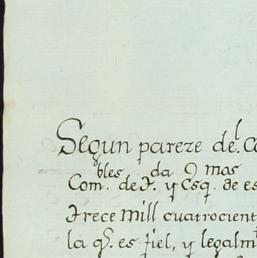 Segun pareze del Co
bles da 9 mas
Com. de F. y Esq. de es
Trece mill cuatrocient
la q.e es fiel, y legalm